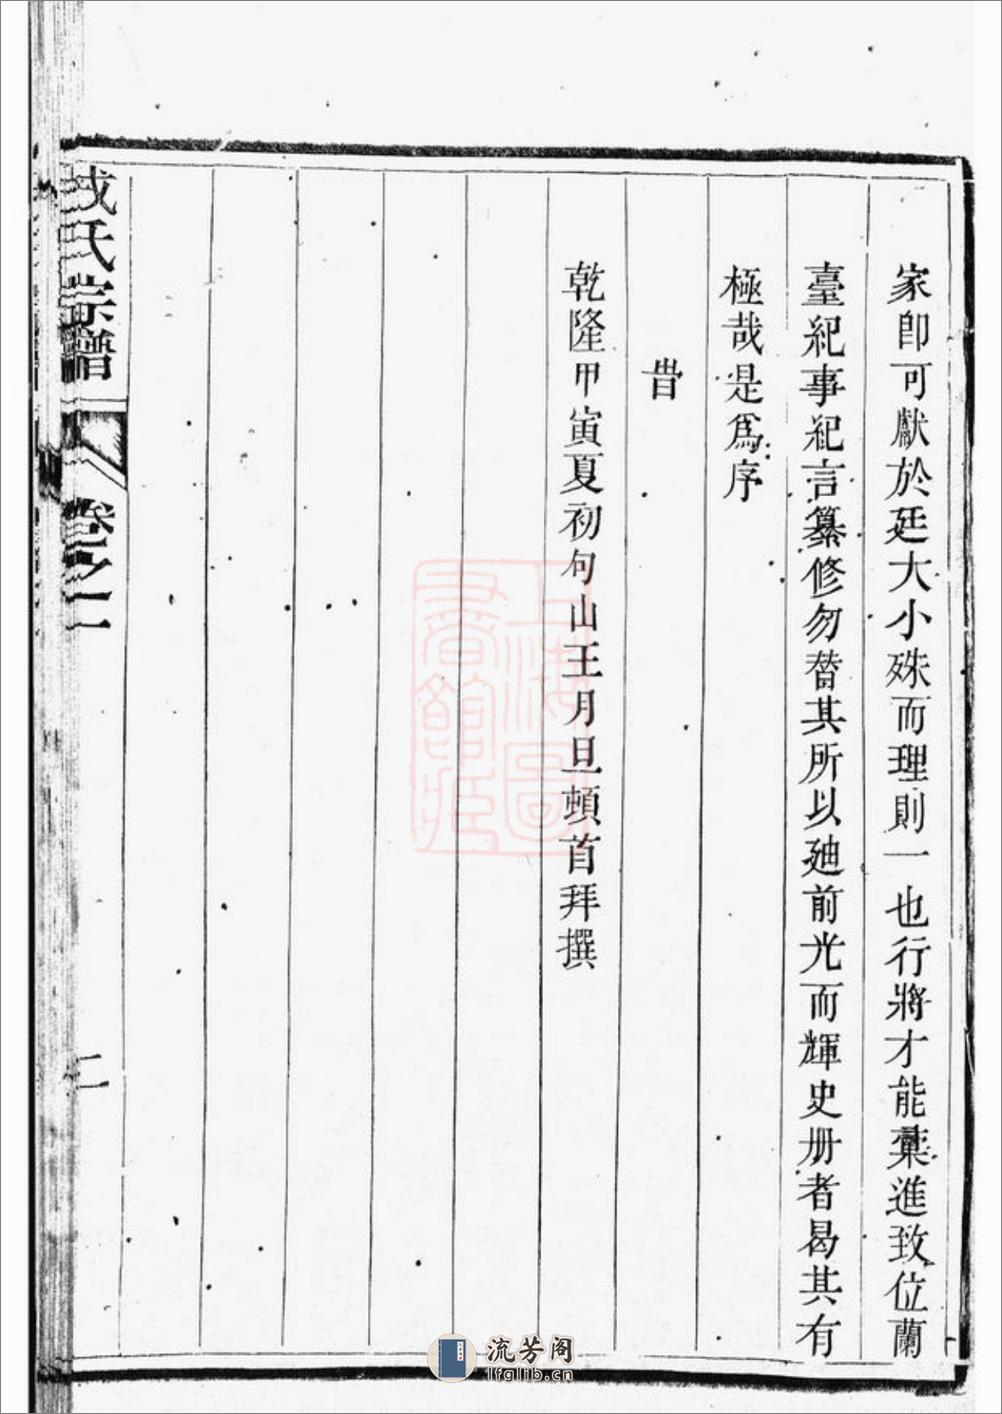 家卽可獻於廷大小殊而理則一也行將才能彙進致位蘭
臺紀事紀言纂修勿替其所以廸前光而輝史册者曷其有
極哉是爲序
旹
乾隆甲寅夏初句山王月旦頓首拜撰
氏宗譜
卷之一
二
上海圖書館藏
流芳阁
lfglib.cn